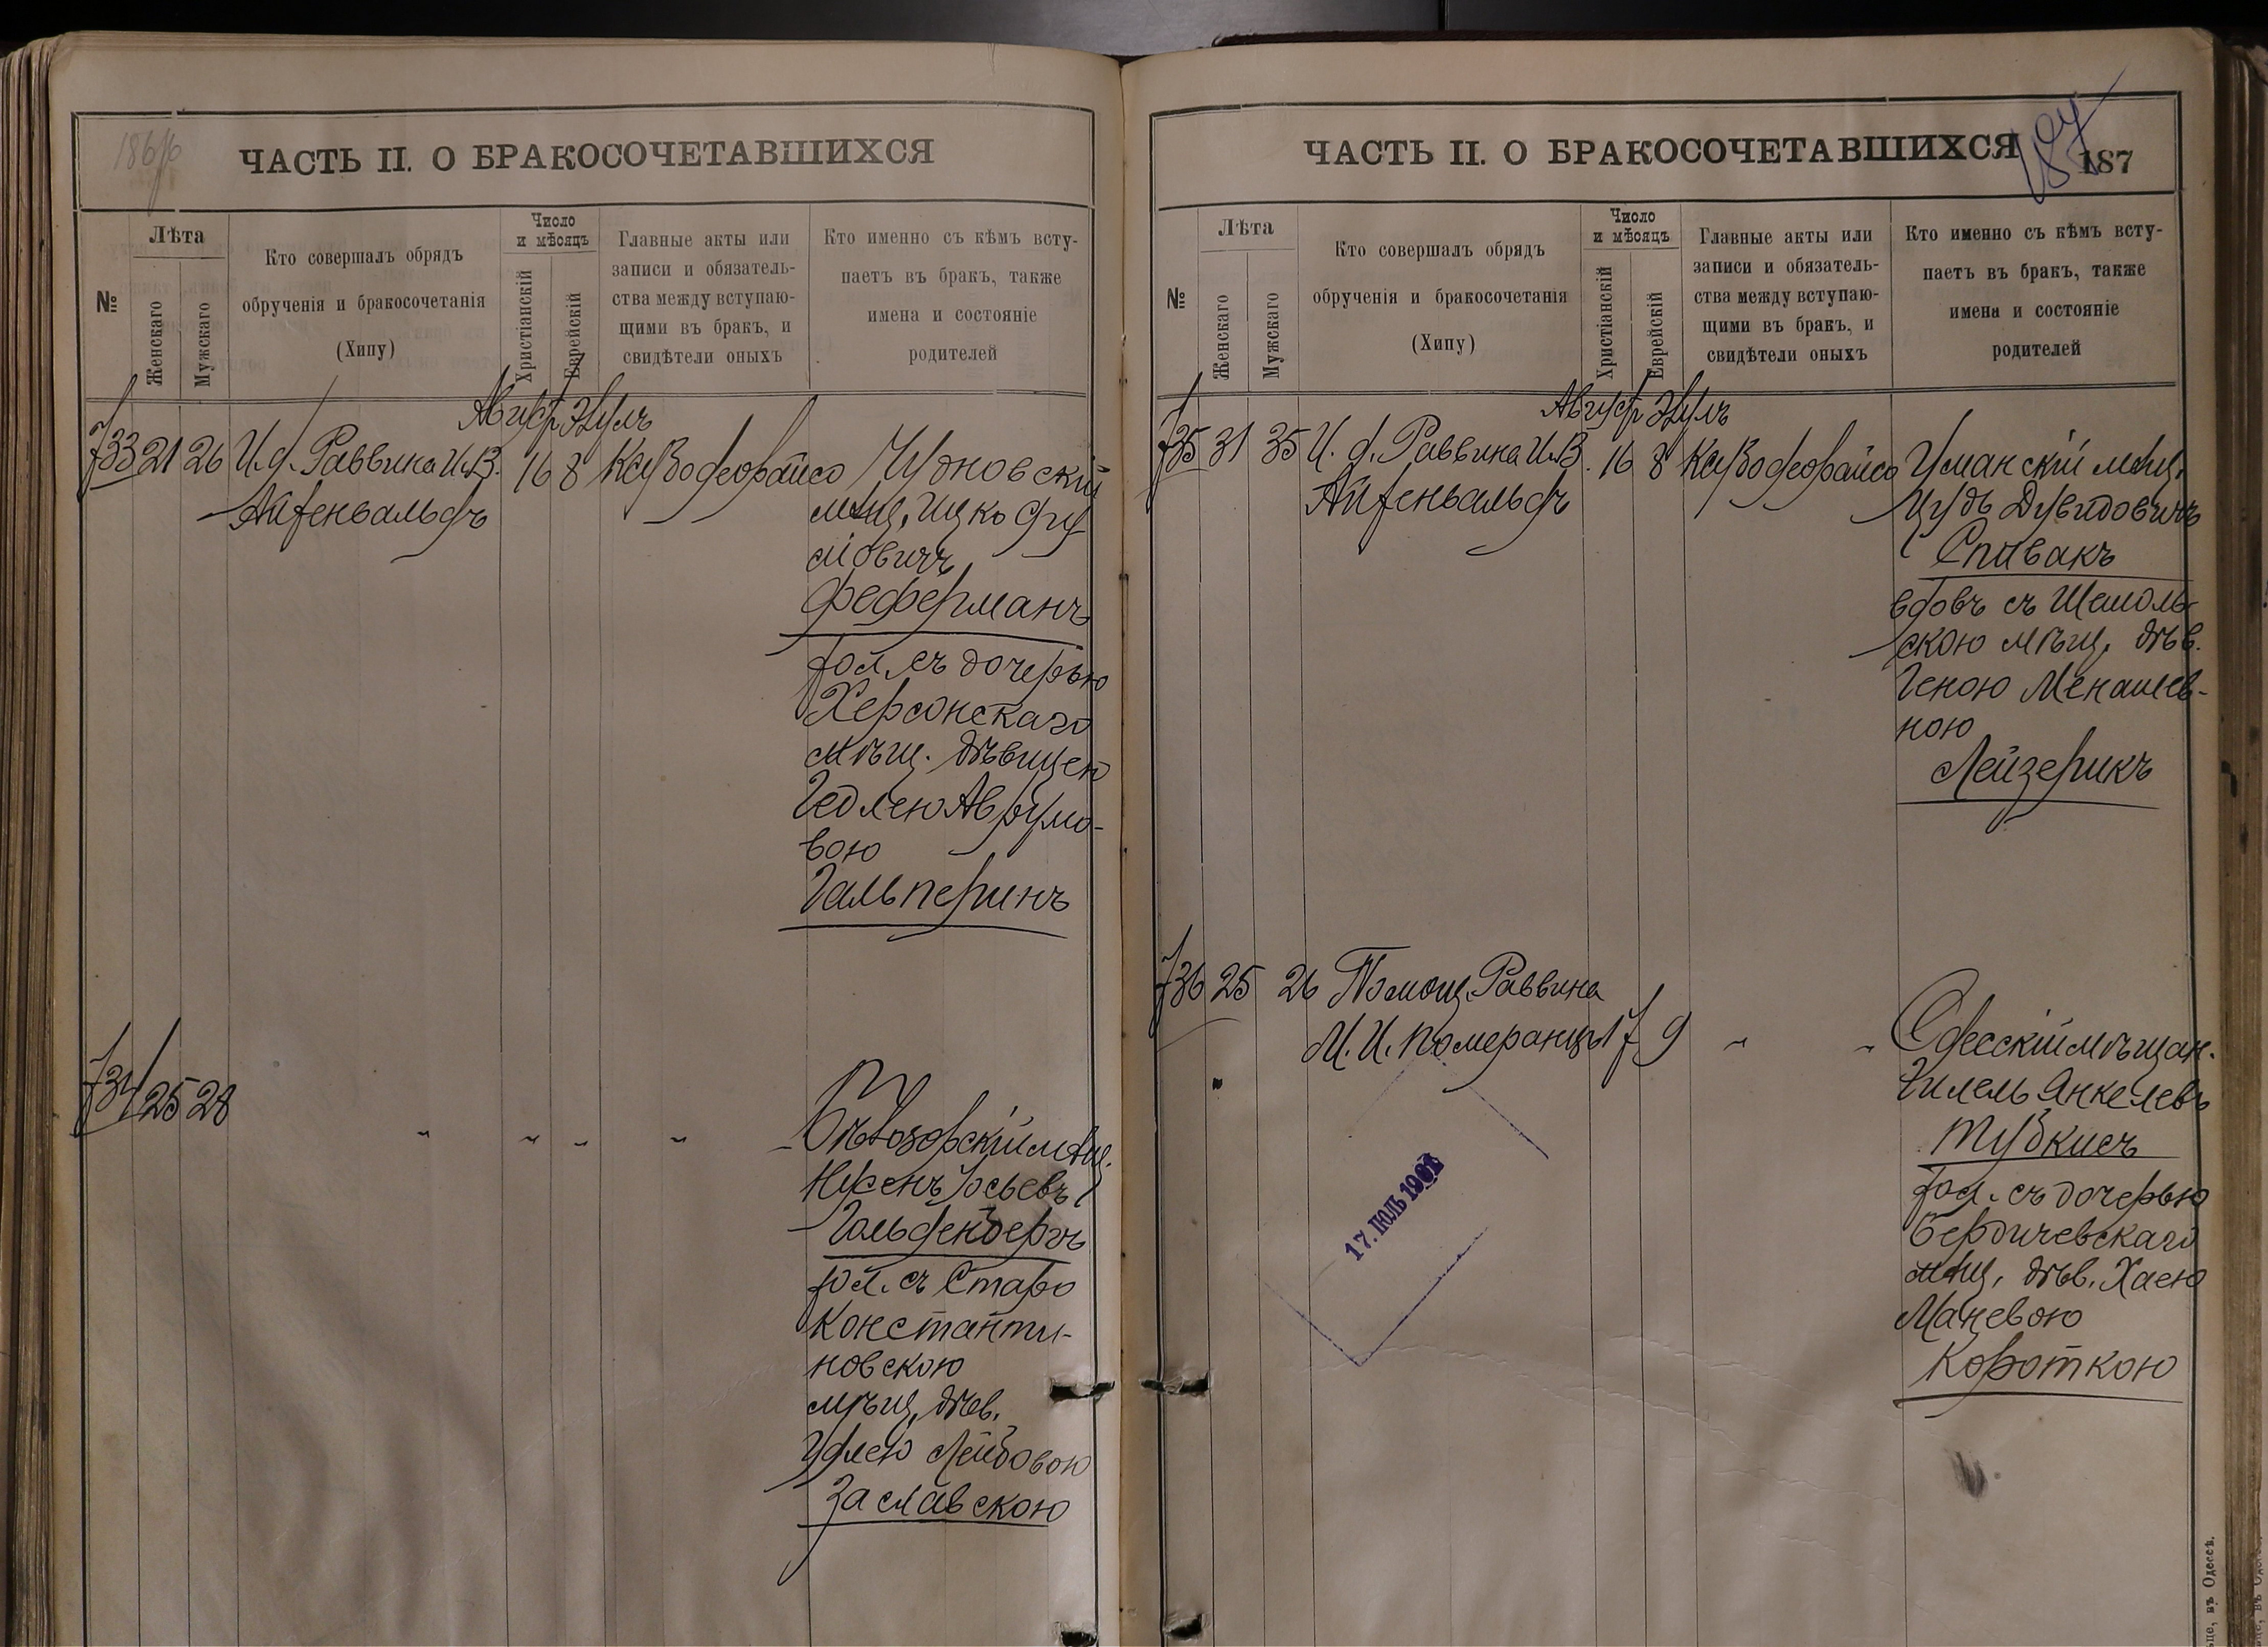 186
ЧАСТЬ II. О БРАКОСОЧЕТАВШИХСЯ
№
Лѣта
Женскаго
Мужскаго
Кто совершалъ обрядъ
обрученія и бракосочетанія
(Хипу)
Число
и мѣсяцъ
Христіанскій
Еврейскій
Главные акты или
записи и обязатель-
ства между вступаю-
щими въ бракъ, и
свидѣтели оныхъ
Кто именно съ кѣмъ всту-
паетъ въ бракъ, также
имена и состояніе
родителей
Август Элулъ
733 21 26 И. д. Раввина И. В. 16 8
Айзенвальдъ
мѣщ. Ицко
Феферманъ
хол. съ дочерью
Херсонскаго
мѣщ. дѣвицею
Гедлею Аврумо-
вою
Гальперинъ
734 25 28 " " " "
мѣщ.
Нусенъ Іосьевъ
Гольденбергъ
хол. съ Старо
Константи-
новскою
мѣщ. дѣв.
Удлею Лейбовою
Заславскою
ЧАСТЬ II. О БРАКОСОЧЕТАВШИХСЯ
187
№
Лѣта
Женскаго
Мужскаго
Кто совершалъ обрядъ
обрученія и бракосочетанія
(Хипу)
Число
и мѣсяцъ
Христіанскій
Еврейскій
Главные акты или
записи и обязатель-
ства между вступаю-
щими въ бракъ, и
свидѣтели оныхъ
Кто именно съ кѣмъ всту-
паетъ въ бракъ, также
имена и состояніе
родителей
Август Элулъ
735 31 35 И. д. Раввина И. В. 16 8
Айзенвальдъ
Уманскій мѣщ.
Дувидовичъ
Спивакъ
вдовъ съ
скою мѣщ. дѣв.
Геною Менашев-
ною
Лейзерикъ
736 25 26 Помощ. Раввина
И. И. Померанцъ 17 9 " "
Одесскій мѣщан.
Гилель Янкелевъ
Тубкисъ
хол. съ дочерью
Бердичевскаго
мѣщ. дѣв. Хаею
Маневою
Короткою
17. ІЮЛЬ 1901
въ Одессѣ.